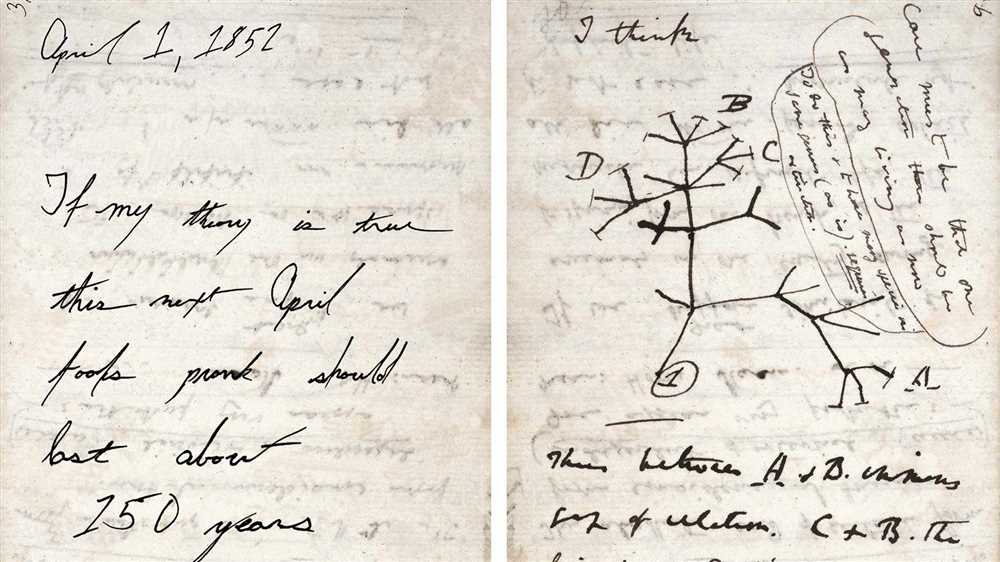 April 1, 1852
If my theory is true
this next April
fools prank should
last about
150 years
I think
Case must be that one
generation then should be
as many living as now
To do this & to have many species in
same genus (as is) requires
extinction.
B
C
D
A
1
Thus between A & B. immense
gap of relation. C & B. the